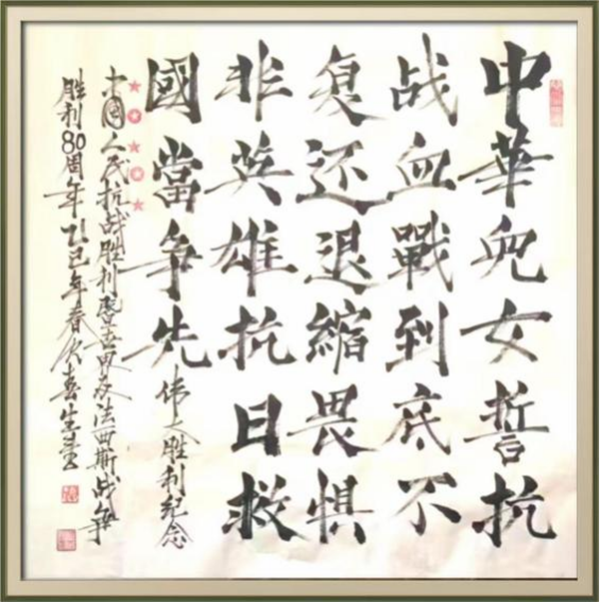 中華兒女誓抗
战血戰到底不
复还退縮畏惧
非英雄抗日救
國當争先
伟大胜利纪念
中国人民抗战胜利暨世界反法西斯战争
胜利80周年乙巳年春喜生書